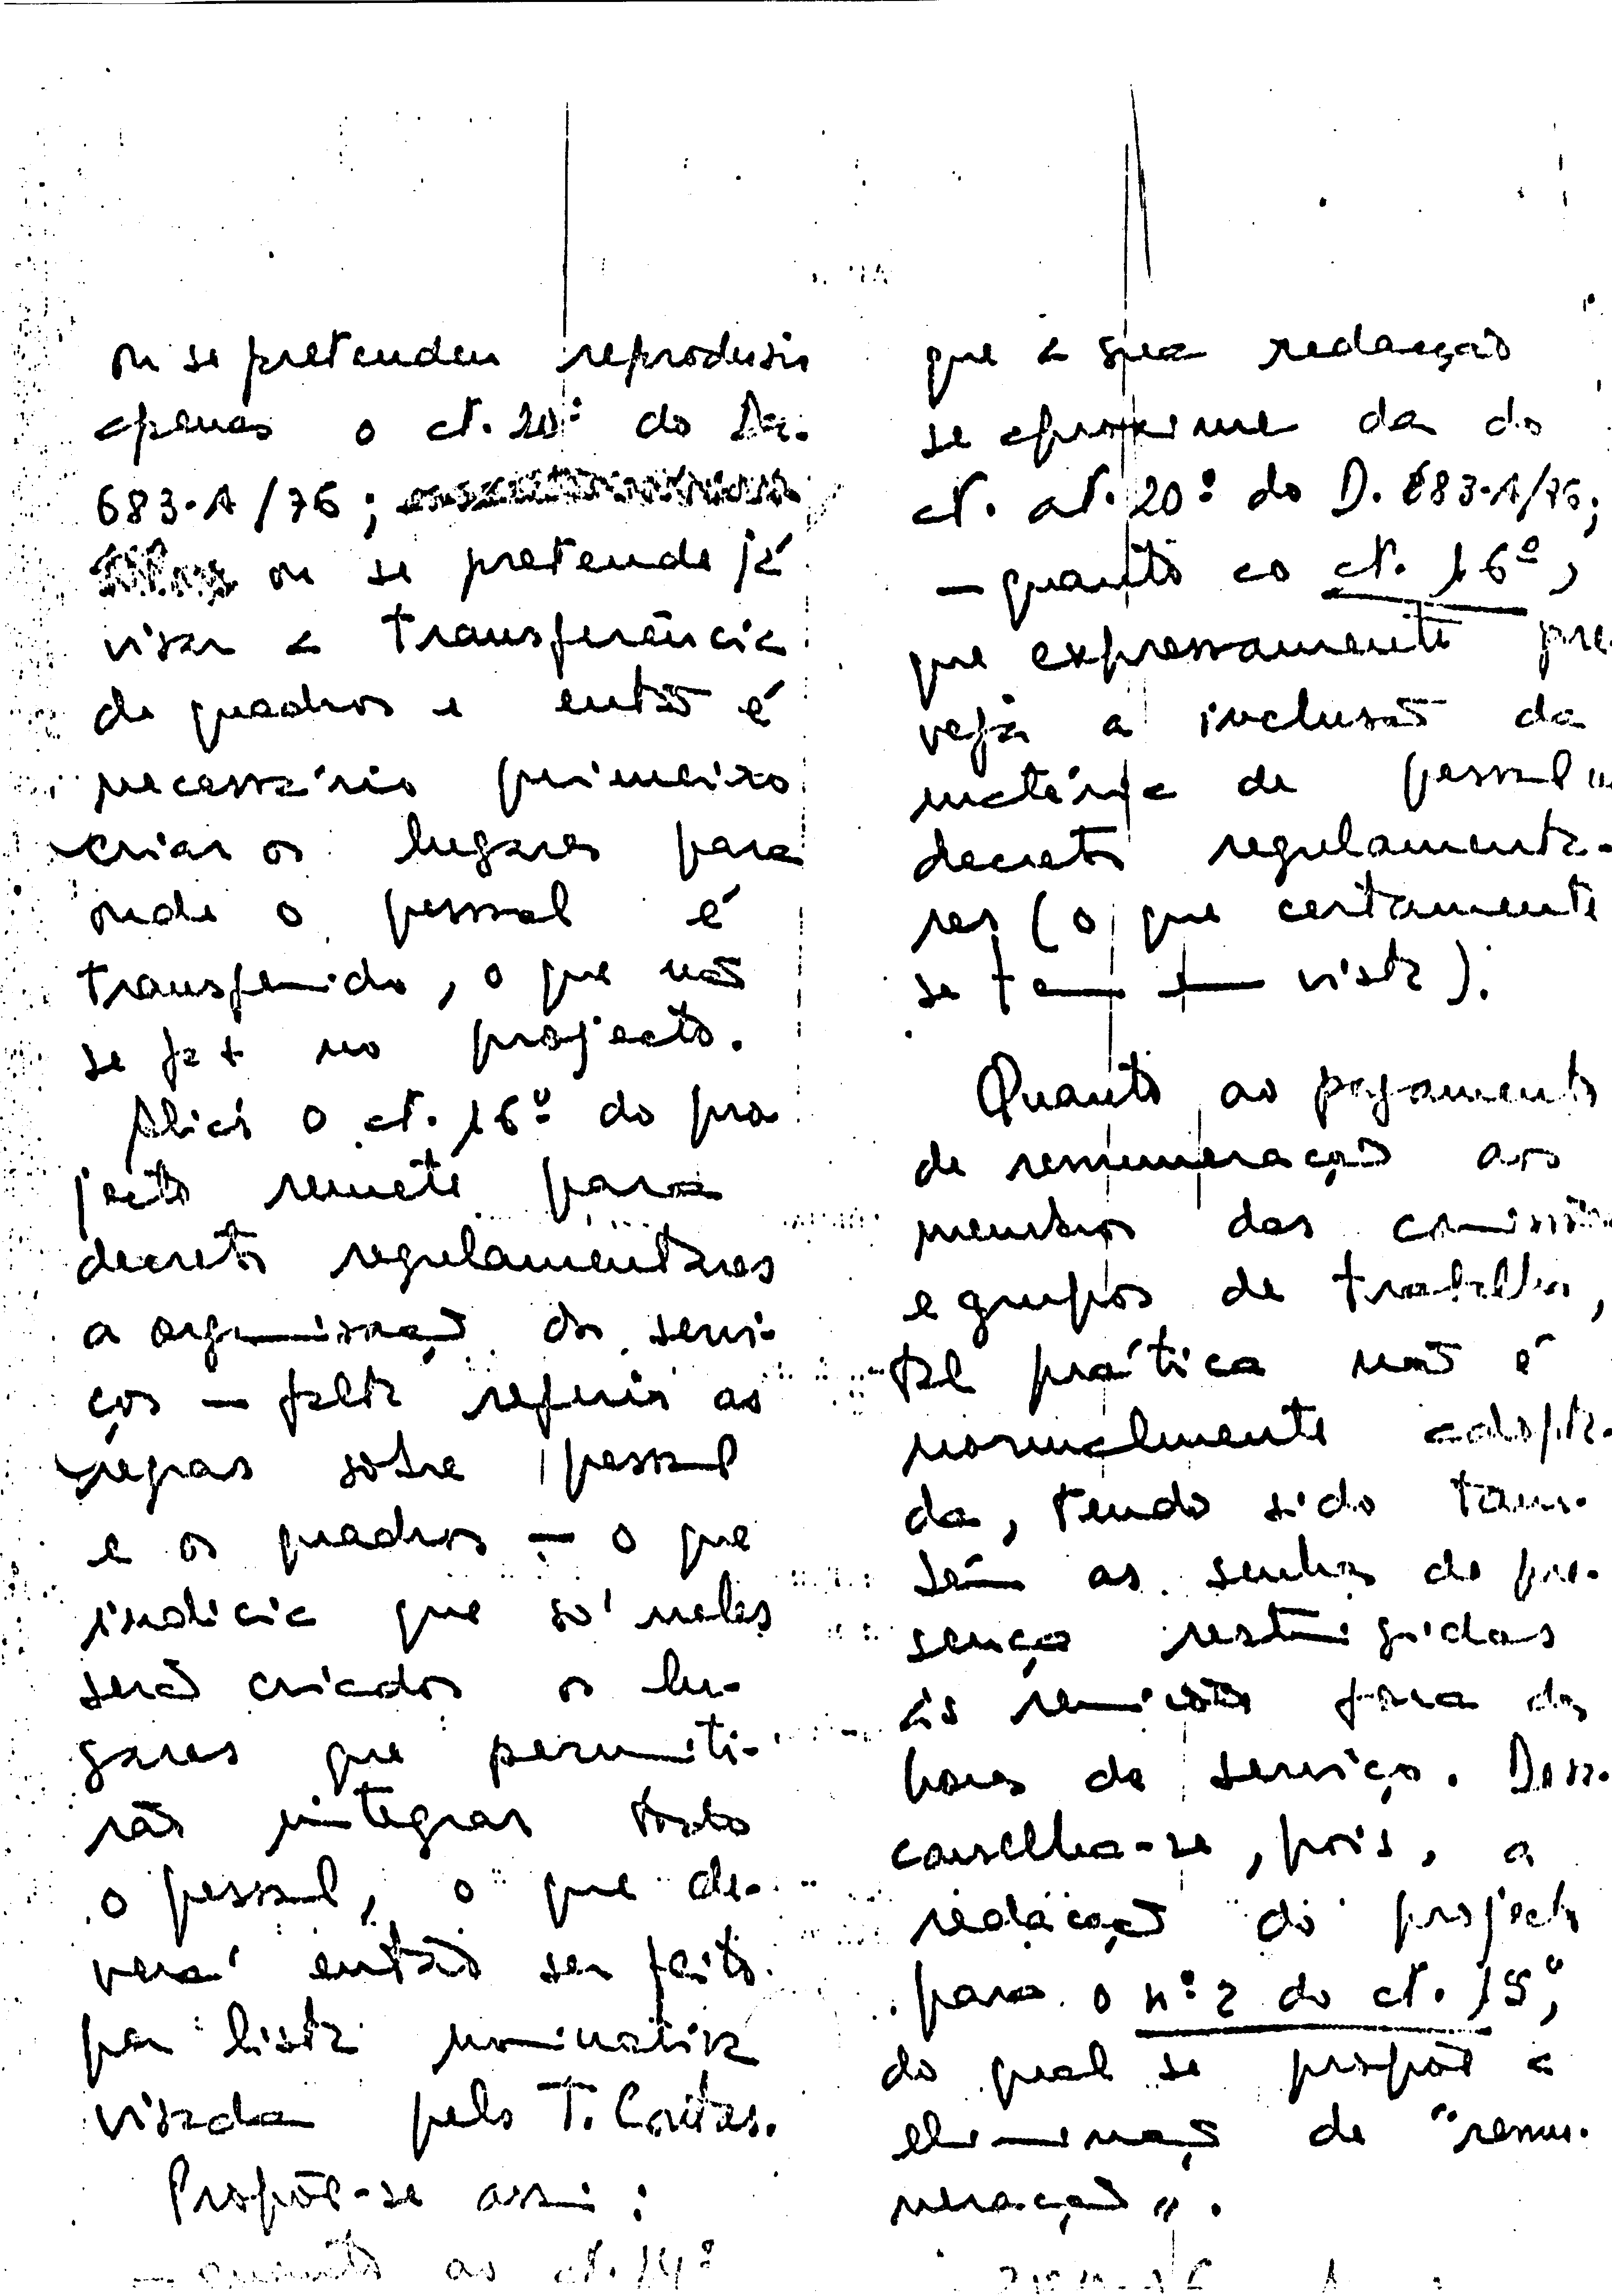 ou se pretendeu reproduzir
apenas o art. 20º do Dec.
683-A/76;
ou se pretende já
visar a transferência
de quadros e então é
necessário primeiro
criar os lugares para
onde o pessoal é
transferido, o que não
se fez no projecto.
Aliás o art. 16º do pro
jecto remete para
decretos regulamentares
a organização dos servi-
ços — falta referir as
regras sobre pessoal
e os quadros — o que
indicia que só neles
serão criados os lu-
gares que permiti-
rão integrar todo
o pessoal, o que de-
verá então ser feito
por lista nominativa
visada pelo T. Contas.
Propõe-se assim:
— quanto ao art. 14º
que a sua redacção
se aproxime da do
art. art. 20º do D. 683-A/76;
— quanto ao art. 16º,
que expressamente pre
veja a inclusão da
matéria de pessoal
decretos regulamenta-
res (o que certamente
se tem em vista).
Quanto ao pagamento
de remuneração aos
membros das comissões
e grupos de trabalho,
tal prática não é
normalmente adopta-
da, tendo sido tam-
bém as senhas de pre-
sença restringidas
às reuniões fora das
horas de serviço. Desa-
conselha-se, pois, a
redacção do projecto
para o nº 2 do art. 15º,
do qual se propõe a
eliminação de "remu-
neração".